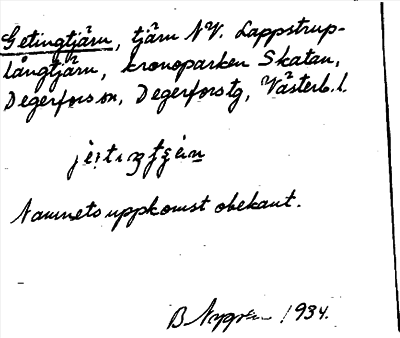 Getingtjärn, tjärn NV. Lappstrup-
långtjärn, kronoparken Skatan,
Degerfors sn, Degerfors tg, Västerb. l.
Namnets uppkomst obekant.
B Nygren 1934.